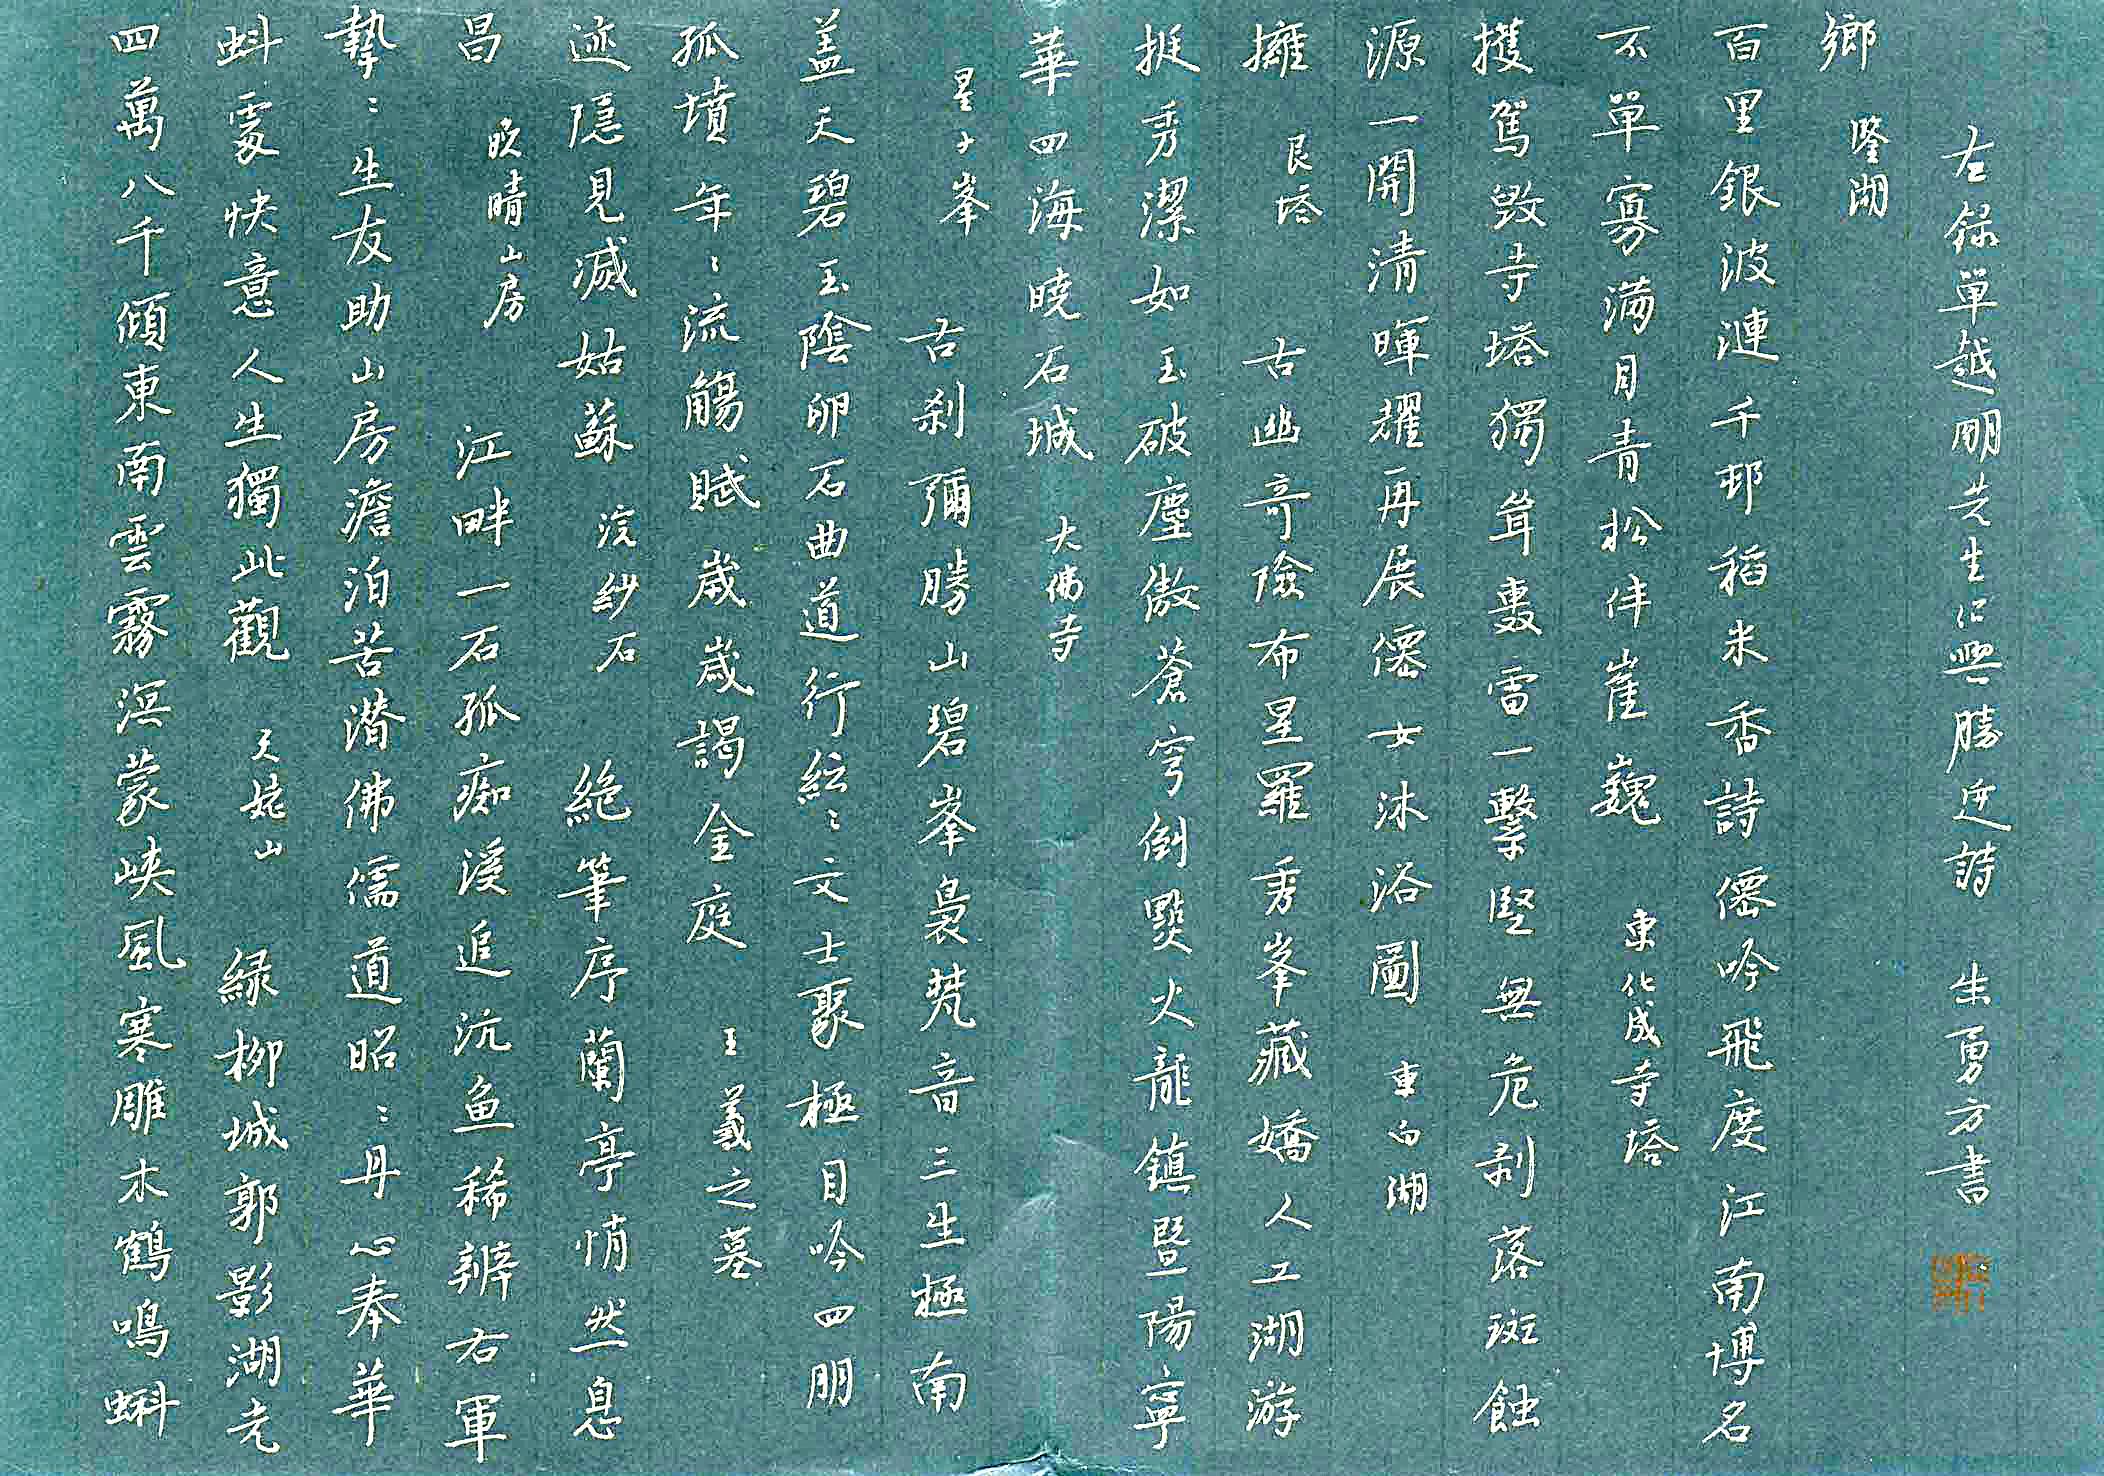 四萬八千傾東南雲霧溟蒙峽風寒雕木鶴鳴蝌
蚪處快意人生獨此觀 天姥山 綠柳城郭影湖光
摯〻生友助山房澹泊苦潛佛儒道昭〻丹心奉華
昌 晚晴山房 江畔一石孤痴溪追沉鱼稀辨右軍
迹隱見滅姑蘇 浣紗石 絶筆序蘭亭悄然息
孤墳年〻流觴賦歲歲謁金庭 王羲之墓
盖天碧玉陰卵石曲道行紜〻文士聚極目吟四朋
星子峯 古刹彌勝山碧峯裊梵音三生極南
華四海曉石城 大佛寺
挺秀潔如玉破塵傲蒼穹倒㷠火龍鎮暨陽寧
擁 艮塔 古幽奇險布星羅秀峯藏嬌人工湖游
源一開清暉耀再展僊女沐浴圖 東白湖
攫駡毀寺塔獨耸轟雷一擊堅無危剥落斑蝕
不單寡滿月青松伴崔巍 東化成寺塔
百里銀波漣千邨稻米香詩僊吟飛度江南博名
鄉 鑒湖
左録單越朋先生紹興勝迹詩 朱勇方書